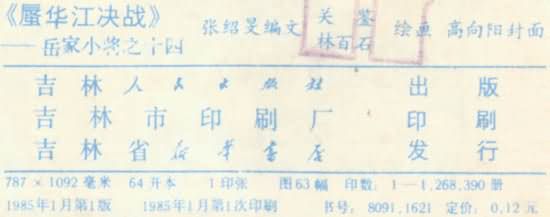 《蜃华江决战》
——岳家小将之十四
张绍旻编文 关鉴 林百石 绘画 高向阳封面
吉林人民出版社 出版
吉林市印刷厂 印刷
吉林省新华书店 发行
787×1092毫米 64开本 1印张 图63幅 印数：1—1,268,390册
1985年1月第1版 1985年1月第1次印刷 书号：8091.1621 定价：0.12元